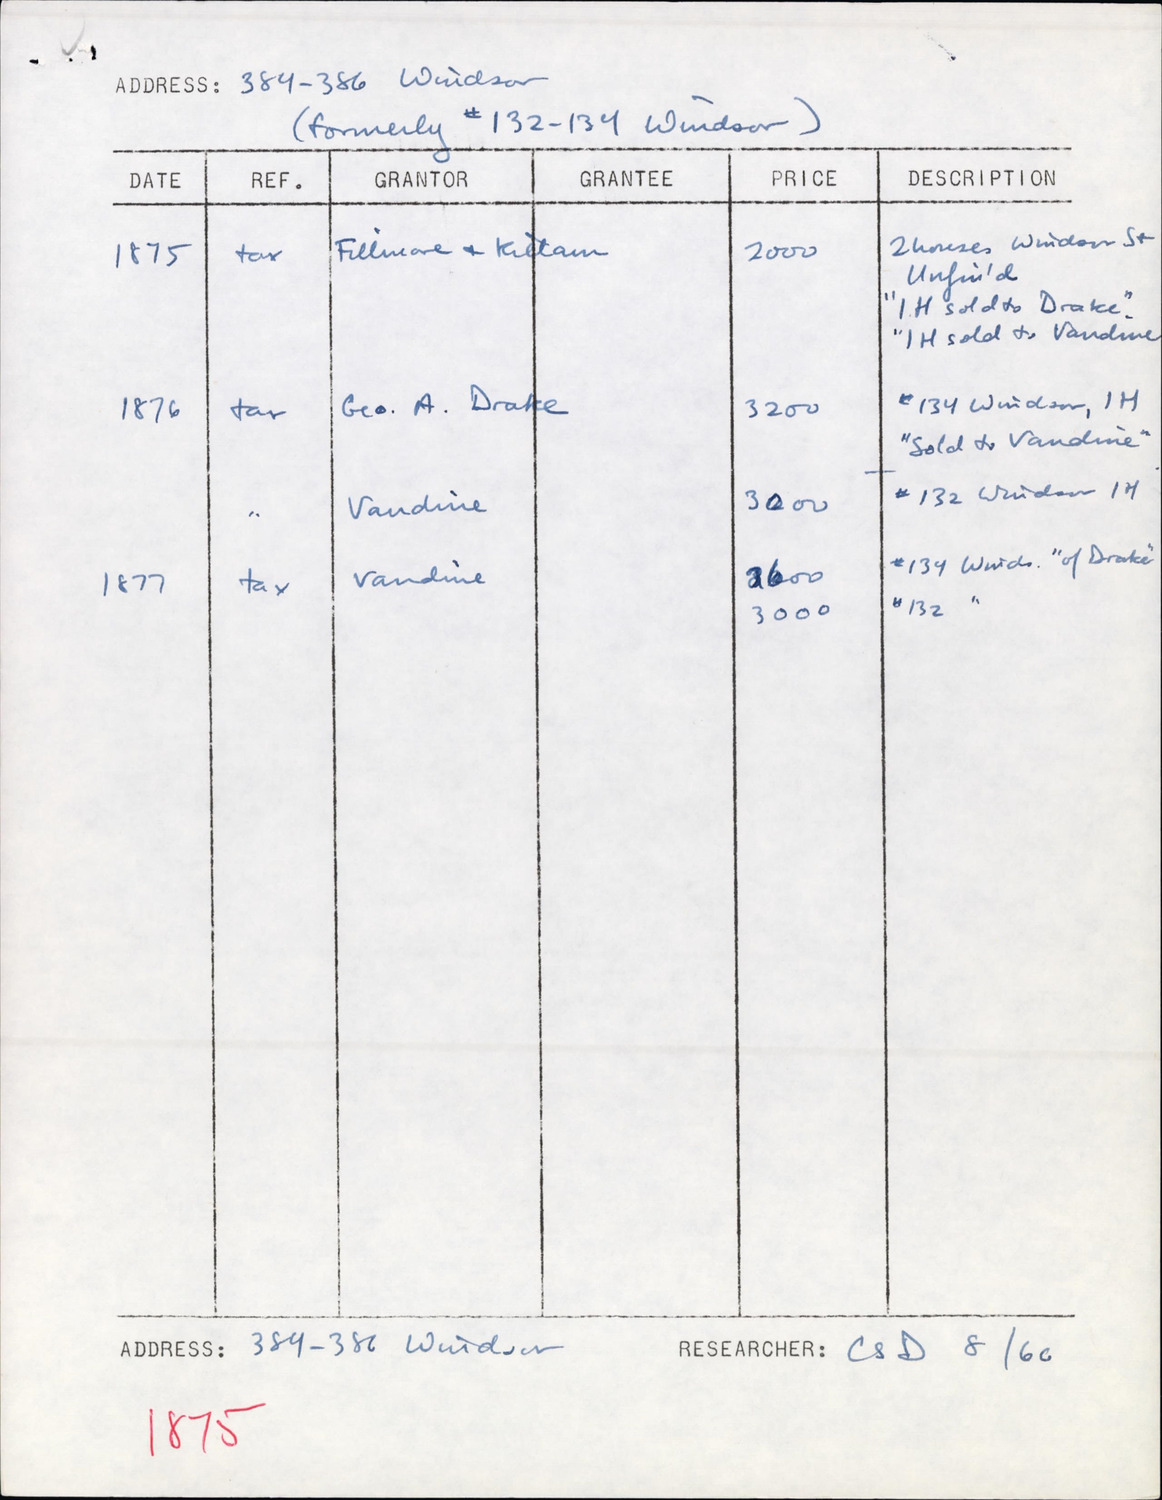 ADDRESS: 384-386 Windsor
(formerly #132-134 Windsor)
DATE REF. GRANTOR GRANTEE PRICE DESCRIPTION
1875 tax Fillmore + Killam 2000 2 houses Windsor St
Unfin'd
"1 H sold to Drake".
"1 H sold to Vandine
1876 tax Geo. A. Drake 3200 #134 Windsor, 1H
"Sold to Vandine"
" Vandine 3000 #132 Windsor 1H
1877 tax Vandine #134 Winds. "of Drake"
3000 #132 "
ADDRESS: 384-386 Windsor RESEARCHER: CSD 8/66
1875